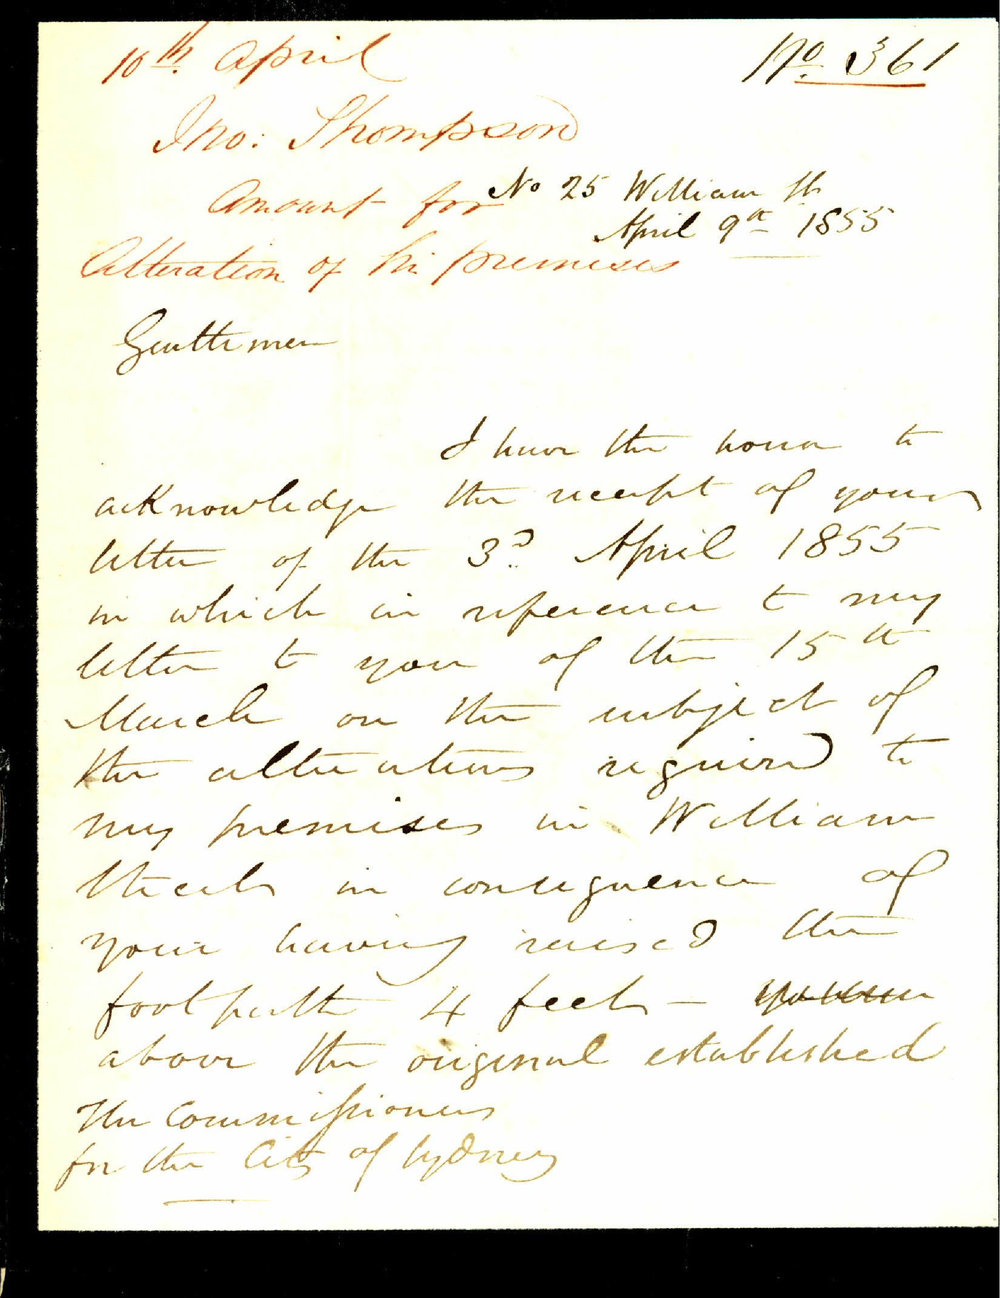 10th. April
No. 361
Jno: Thompson
Amount for
Alteration of his premises
No 25 William St
April 9th 1855
Gentlemen
I have the honor to
acknowledge the receipt of your
letter of the 3d. April 1855
in which in reference to my
letter to you of the 15th
March on the subject of
the alterations required to
my premises in William
Street in consequence of
your having raised the
footpath 4 feet –
above the original established
The Commissioners
for the City of Sydney